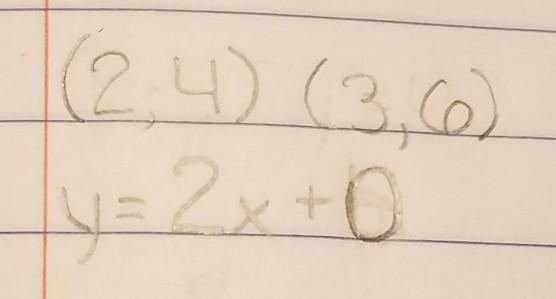 (2,4) (3,6)
y=2x+0